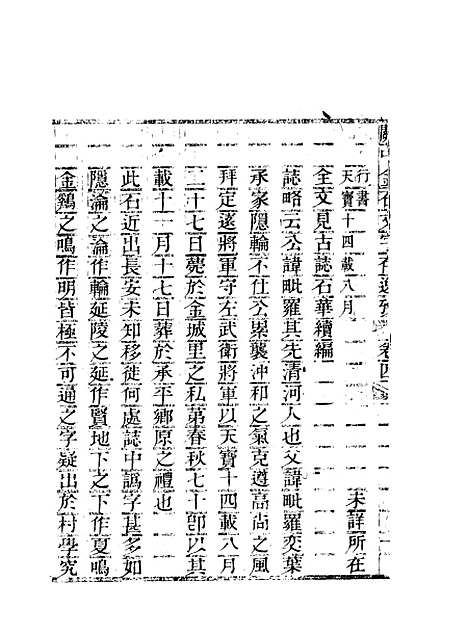 關中金石文字存逸攷 卷四
行書
天寶十四載八月 未詳所在
全文見古誌石華續編
誌略云公諱毗羅其先清河人也父諱毗羅奕葉
承家隱輪不仕公累襲沖和之氣克遵高尚之風
拜定遠將軍守左武衛將軍以天寶十四載八月
二十七日薨於金城里之私第春秋七十卽以其
載十一月十七日葬於承平鄉原之禮也
此石近出長安未知移徙何處誌中譌字甚多如
隱淪之淪作輪延陵之延作賢地下之下作夏鳴
金鷄之鳴作明皆極不可通之字疑出於村學究